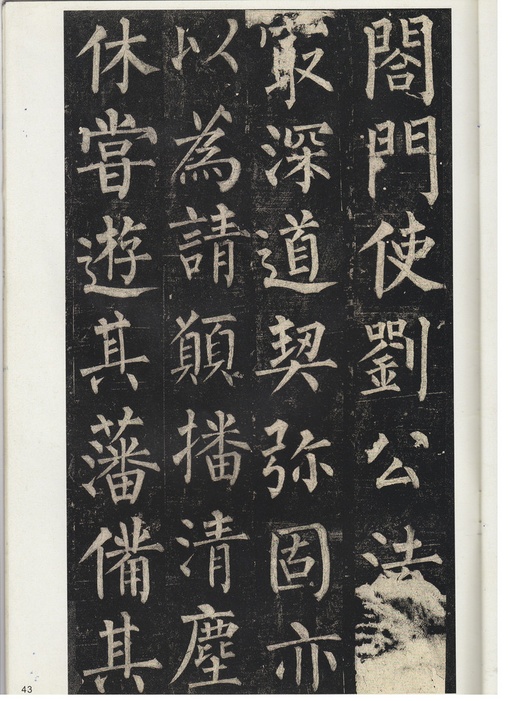 閤門使劉公法
㝡深道契弥固亦
以為請願播清塵
休甞遊其藩備其
43